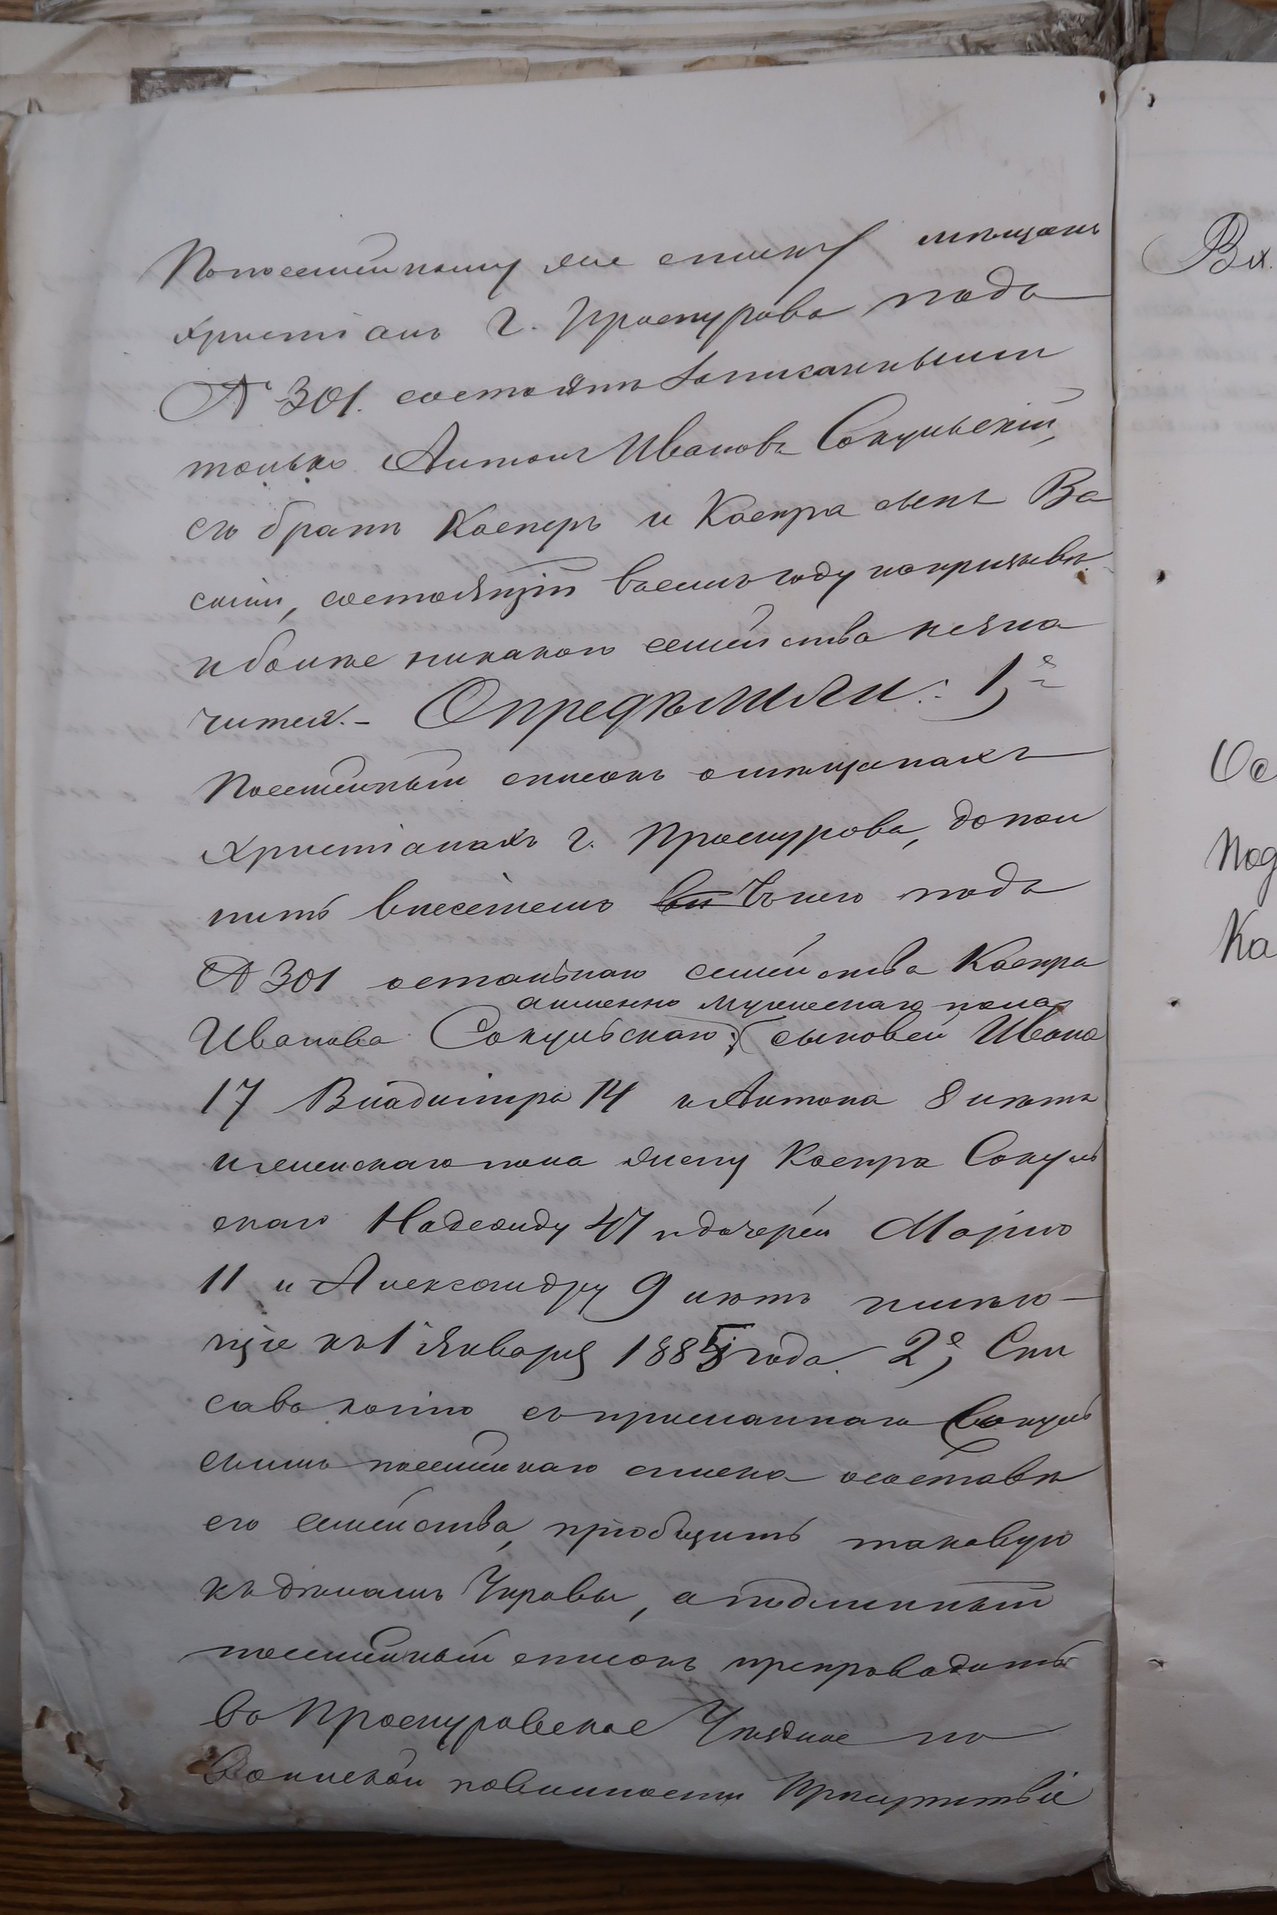 Попосемейному же списку мѣщанъ
христіанъ г. Проскурова подъ
№ 301. состоятъ записанными
только Антонъ Ивановъ Сокульскій,
его братъ Касперъ и Каспра сынъ Ва
силій, состоящій въ семъ году на призывѣ
и болѣе никакого семейства не зна
чится. – Опредѣлили: 1е,
Посемейный списокъ о мѣщанахъ
христіанахъ г. Проскурова, допол
нить внесеніемъ въ него подъ
№ 301 остальнаго семейства Каспра
а именно мужескаго пола
Иванова Сокульскаго: сыновей Ивана
17 Владиміра 14 и Антона 8 лѣтъ
и женскаго пола жену Каспра Сокуль
скаго Надежду 47 и дочерей Марію
11 и Александру 9 лѣтъ имѣю-
щіе къ 1 Января 1885 года. 2е, Спи
савъ копію съ присланнаго Сокуль
скимъ посемейнаго списка о составѣ
его семейства, пріобщить таковую
къ дѣламъ Управы, а подлинный
посемейный списокъ препроводить
въ Проскуровское Уѣздное по
Воинской повинности Присутствіе
Вх.
Ос
Под
Ка